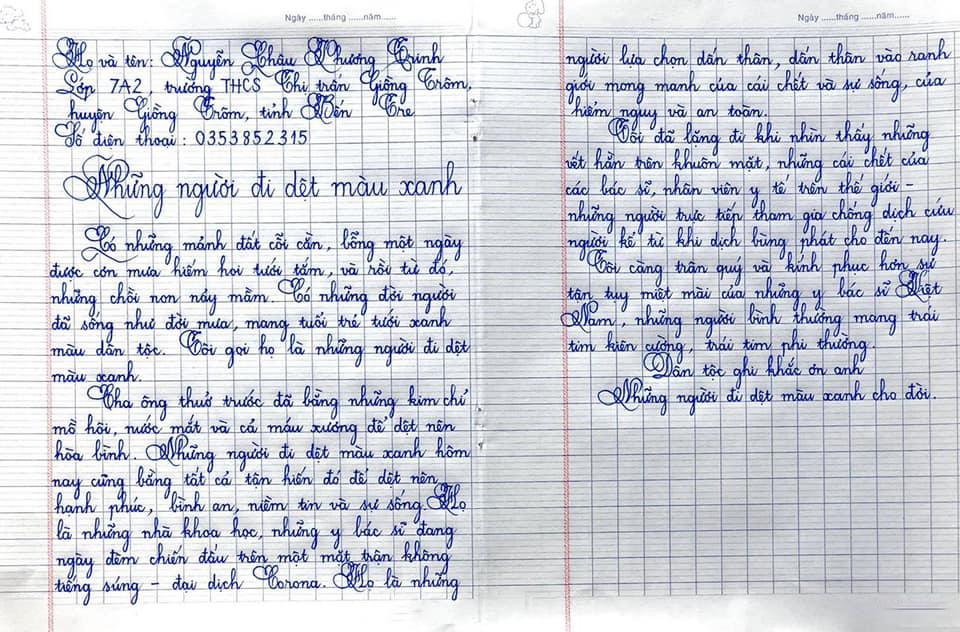 Ngày ......tháng ......năm......
Họ và tên: Nguyễn Châu Phương Trinh
Lớp 7A2, trường THCS Thị trấn Giồng Trôm,
huyện Giồng Trôm, tỉnh Bến Tre
Số điện thoại: 0353852315
Những người đi dệt màu xanh
Có những mảnh đất cỗi cằn, bỗng một ngày
được cơn mưa hiếm hoi tưới tắm, và rồi từ đó,
những chồi non nảy mầm. Có những đời người
đã sống như đời mưa, mang tuổi trẻ tưới xanh
màu dân tộc. Tôi gọi họ là những người đi dệt
màu xanh.
Cha ông thuở trước đã bằng những kim chỉ
mồ hôi, nước mắt và cả máu xương để dệt nên
hòa bình. Những người đi dệt màu xanh hôm
nay cũng bằng tất cả tận hiến đó để dệt nên
hạnh phúc, bình an, niềm tin và sự sống. Họ
là những nhà khoa học, những y bác sĩ đang
ngày đêm chiến đấu trên một mặt trận không
tiếng súng - đại dịch Corona. Họ là những
Ngày ......tháng ......năm......
người lựa chọn dấn thân, dấn thân vào ranh
giới mong manh của cái chết và sự sống, của
hiểm nguy và an toàn.
Tôi đã lặng đi khi nhìn thấy những
vết hằn trên khuôn mặt, những cái chết của
các bác sĩ, nhân viên y tế trên thế giới -
những người trực tiếp tham gia chống dịch cứu
người kể từ khi dịch bùng phát cho đến nay.
Tôi càng trân quý và kính phục hơn sự
tận tụy miệt mài của những y bác sĩ Việt
Nam, những người bình thường mang trái
tim kiên cường, trái tim phi thường.
Dân tộc ghi khắc ơn anh
Những người đi dệt màu xanh cho đời.